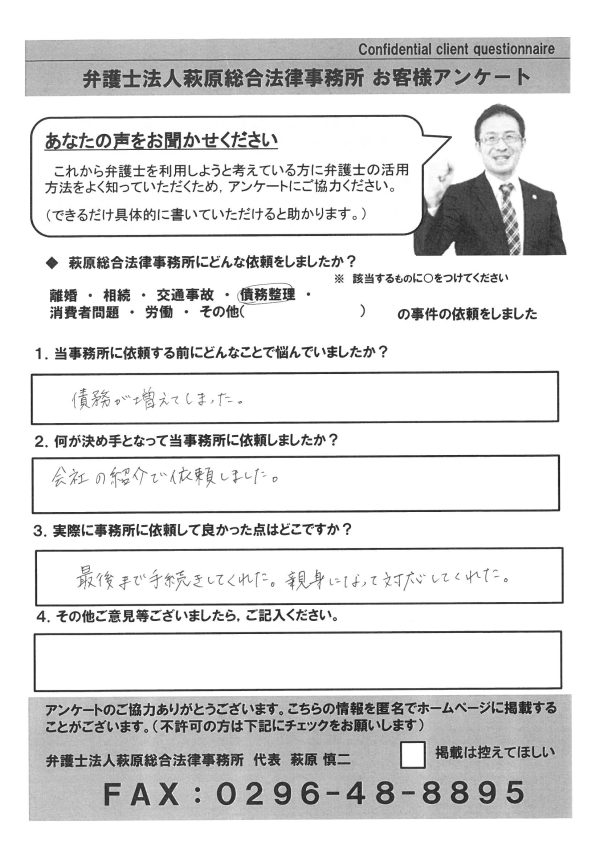 Confidential client questionnaire
弁護士法人萩原総合法律事務所 お客様アンケート
あなたの声をお聞かせください
これから弁護士を利用しようと考えている方に弁護士の活用
方法をよく知っていただくため，アンケートにご協力ください。
（できるだけ具体的に書いていただけると助かります。）
◆ 萩原総合法律事務所にどんな依頼をしましたか？
※ 該当するものに○をつけてください
離婚 ・ 相続 ・ 交通事故 ・ 債務整理 ・
消費者問題 ・ 労働 ・ その他（ ） の事件の依頼をしました
１．当事務所に依頼する前にどんなことで悩んでいましたか？
債務が増えてしまった。
２．何が決め手となって当事務所に依頼しましたか？
会社の紹介で依頼しました。
３．実際に事務所に依頼して良かった点はどこですか？
最後まで手続きしてくれた。親身になって対応してくれた。
４．その他ご意見等ございましたら，ご記入ください。
アンケートのご協力ありがとうございます。こちらの情報を匿名でホームページに掲載する
ことがございます。（不許可の方は下記にチェックをお願いします）
弁護士法人萩原総合法律事務所 代表 萩原 慎二 掲載は控えてほしい
ＦＡＸ：０２９６－４８－８８９５